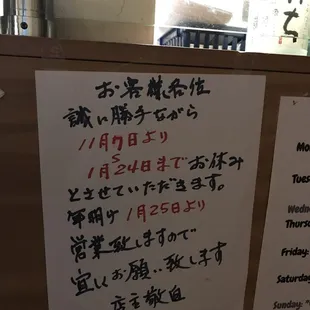 お客様各位
誠に勝手ながら
11月7日より
1月24日までお休み
とさせていただきます。
年明け1月25日より
営業致しますので
宜しくお願い致します
店主敬白
Mo
Tues
Wedne
Thurs
Friday:
Saturday
Sunday: "